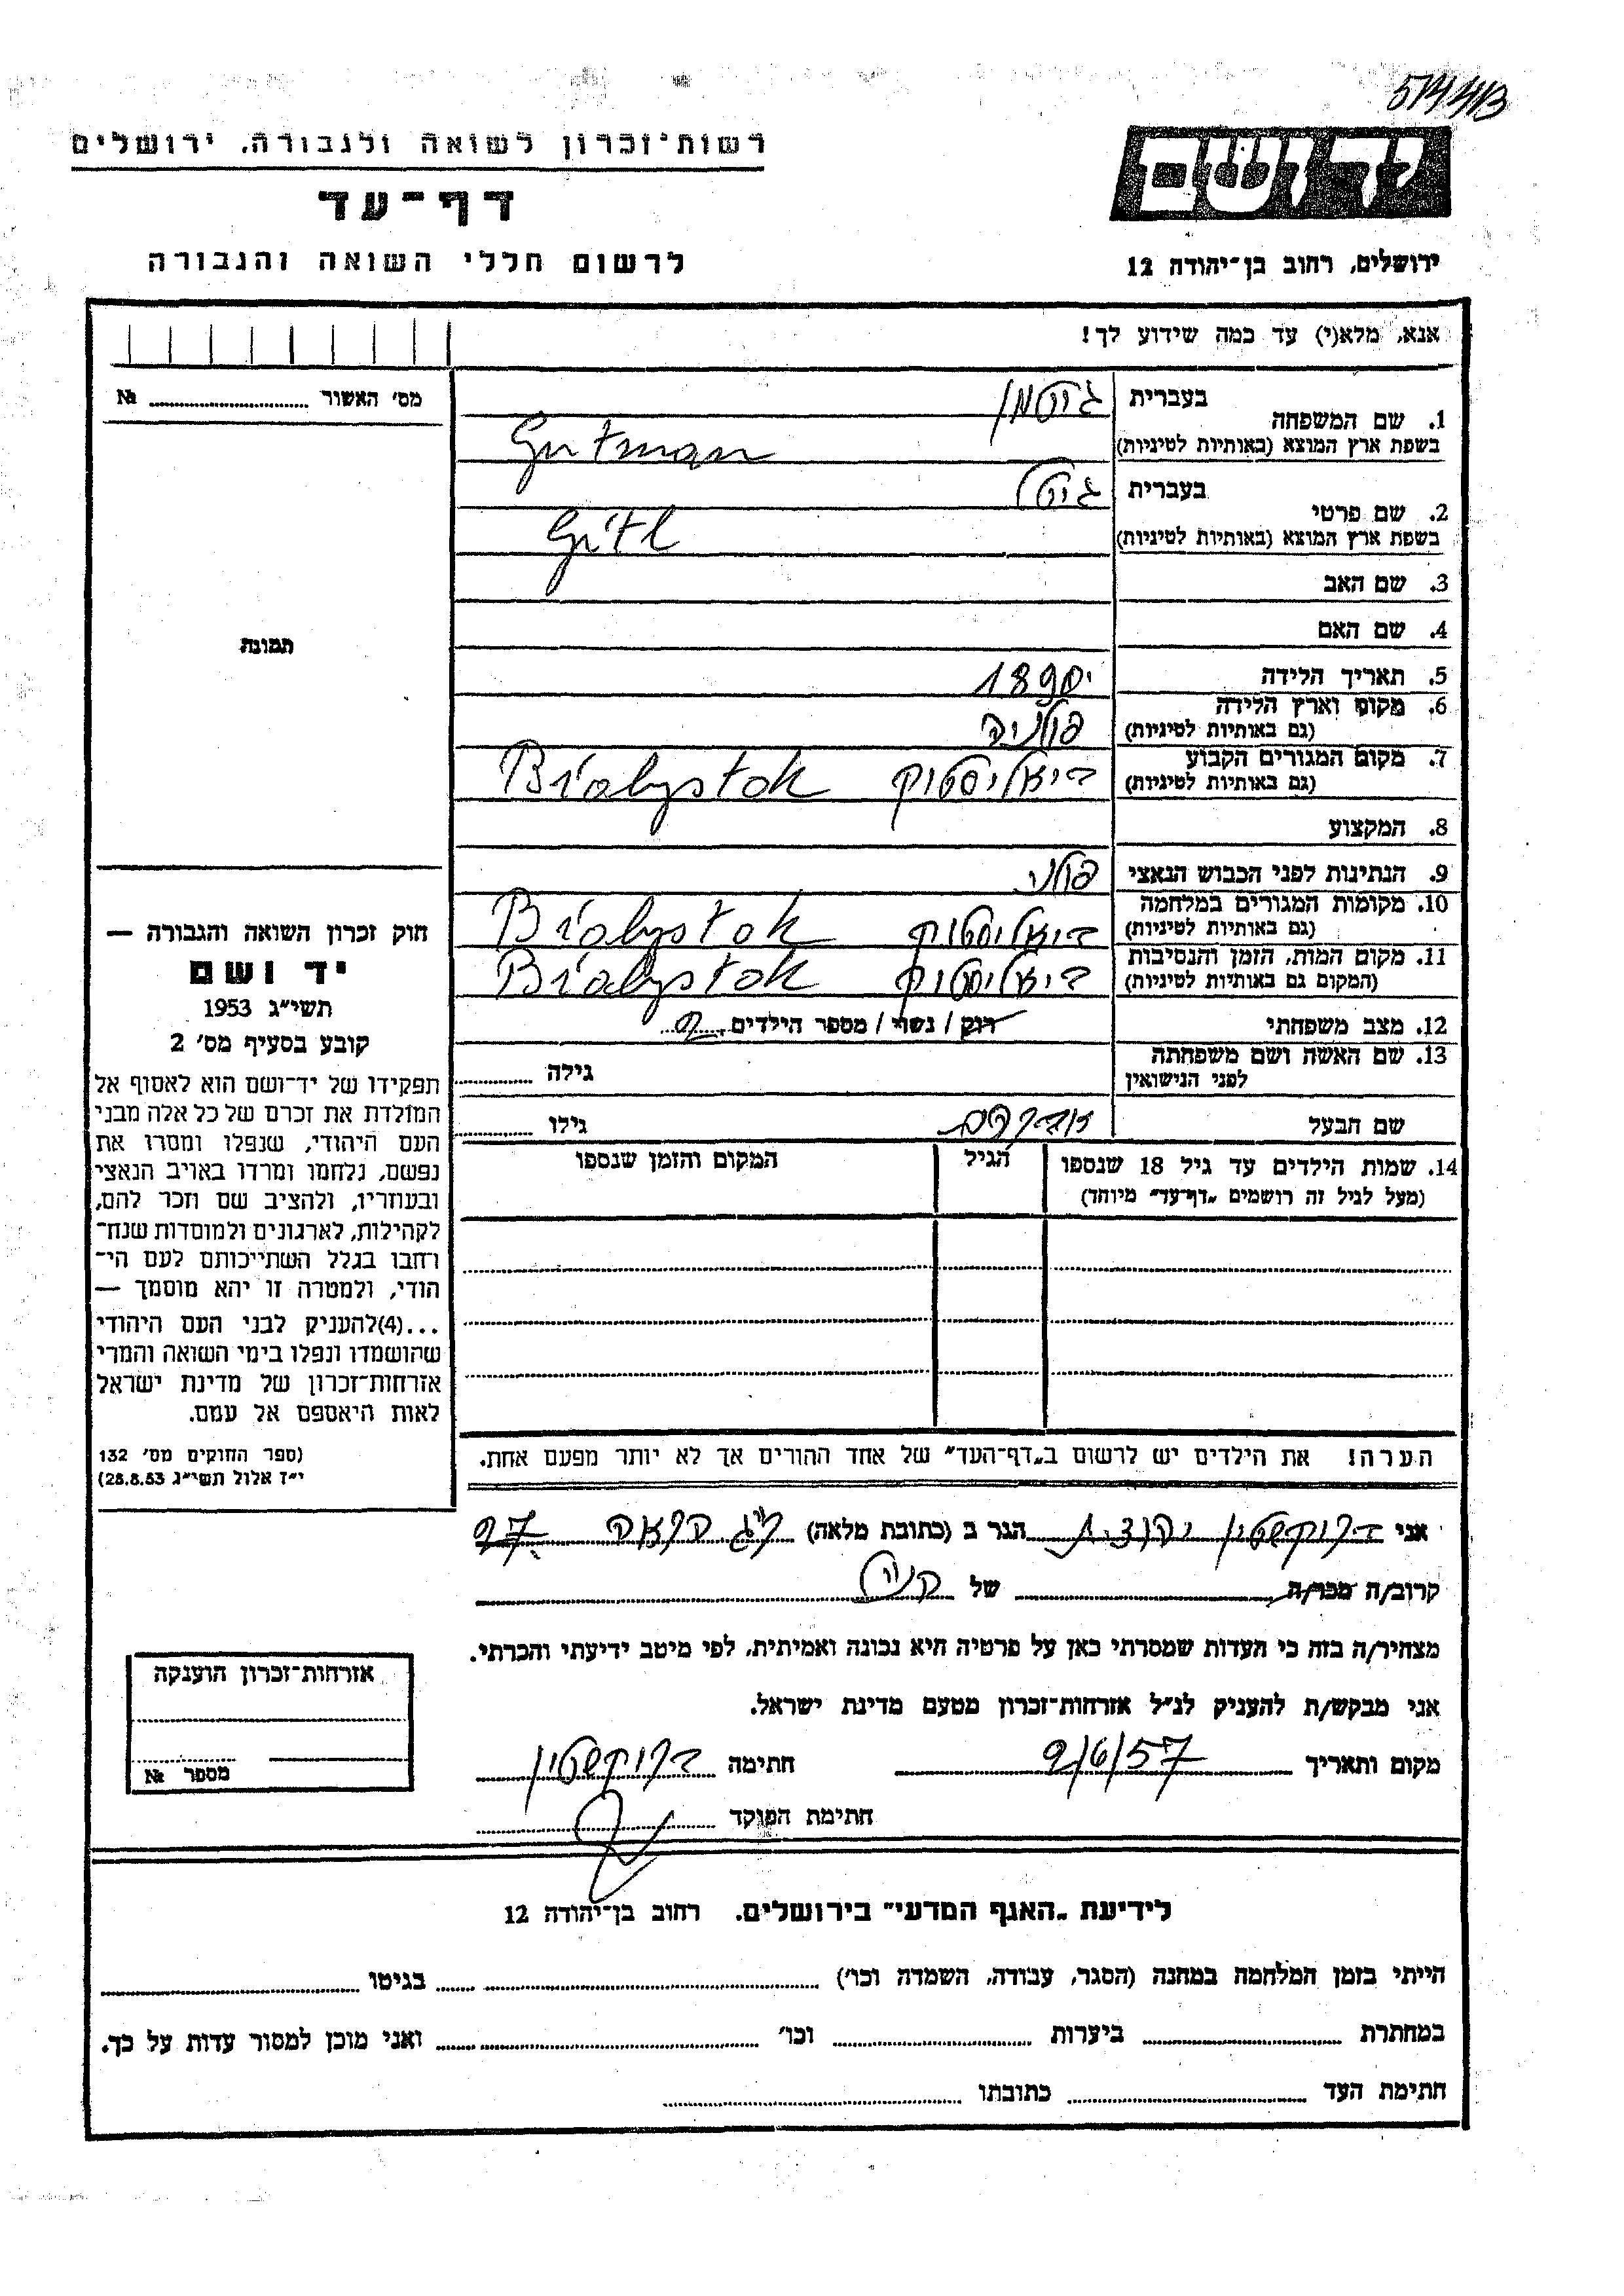 רשות־זכרון לשואה ולגבורה, ירושלים
דף־עד
לרשום חללי השואה והגבורה
יד ושם
ירושלים, רחוב בן־יהודה 12
אנא, מלא(י) עד כמה שידוע לך!
מס׳ האשור № ........
תמונה
1. שם המשפחה
בעברית גוטמן
בשפת ארץ המוצא (באותיות לטיניות) Gutman
2. שם פרטי
בעברית גיטל
בשפת ארץ המוצא (באותיות לטיניות) Gitl
3. שם האב
4. שם האם
5. תאריך הלידה 1890
6. מקום וארץ הלידה פולניה
(גם באותיות לטיניות)
7. מקום המגורים הקבוע ביאליסטוק Bialystok
(גם באותיות לטיניות)
8. המקצוע
9. הנתינות לפני הכבוש הנאצי פולני
10. מקומות המגורים במלחמה ביאליסטוק Bialystok
(גם באותיות לטיניות)
11. מקום המות, הזמן והנסיבות ביאליסטוק Bialystok
(המקום גם באותיות לטיניות)
12. מצב משפחתי רוק / נשוי / מספר הילדים
13. שם האשה ושם משפחתה
לפני הנישואין
גילה ........
שם הבעל אברהם גילו ........
14. שמות הילדים עד גיל 18 שנספו הגיל המקום והזמן שנספו
(מעל לגיל זה רושמים „דף־עד״ מיוחד)
הערה! את הילדים יש לרשום ב„דף־העד״ של אחד ההורים אך לא יותר מפעם אחת.
חוק זכרון השואה והגבורה —
יד ושם
תשי״ג 1953
קובע בסעיף מס׳ 2
תפקידו של יד־ושם הוא לאסוף אל
המולדת את זכרם של כל אלה מבני
העם היהודי, שנפלו ומסרו את
נפשם, נלחמו ומרדו באויב הנאצי
ובעוזריו, ולהציב שם וזכר להם,
לקהילות, לארגונים ולמוסדות שנח־
רבו בגלל השתייכותם לעם הי־
הודי, ולמטרה זו יהא מוסמך —
...(4)להעניק לבני העם היהודי
שהושמדו ונפלו בימי השואה והמרי
אזרחות־זכרון של מדינת ישראל
לאות היאספם אל עמם.
(ספר החוקים מס׳ 132
י״ז אלול תשי״ג 28.8.53)
אני ברוקשטין יהודית הגר ב (כתובת מלאה)
קרוב/ה מכר/ה ........ של
מצהיר/ה בזה כי העדות שמסרתי כאן על פרטיה היא נכונה ואמיתית, לפי מיטב ידיעתי והכרתי.
אני מבקש/ת להעניק לנ״ל אזרחות־זכרון מטעם מדינת ישראל.
מקום ותאריך 9/6/57 חתימה ברוקשטין
חתימת הפוקד
אזרחות־זכרון הוענקה
מספר №
לידיעת „האגף המדעי״ בירושלים, רחוב בן־יהודה 12
הייתי בזמן המלחמה במחנה (הסגר, עבודה, השמדה וכו׳) ........ בגיטו ........
במחתרת ........ ביערות ........ וכו׳ ........ ואני מוכן למסור עדות על כך.
חתימת העד ........ כתובתו ........